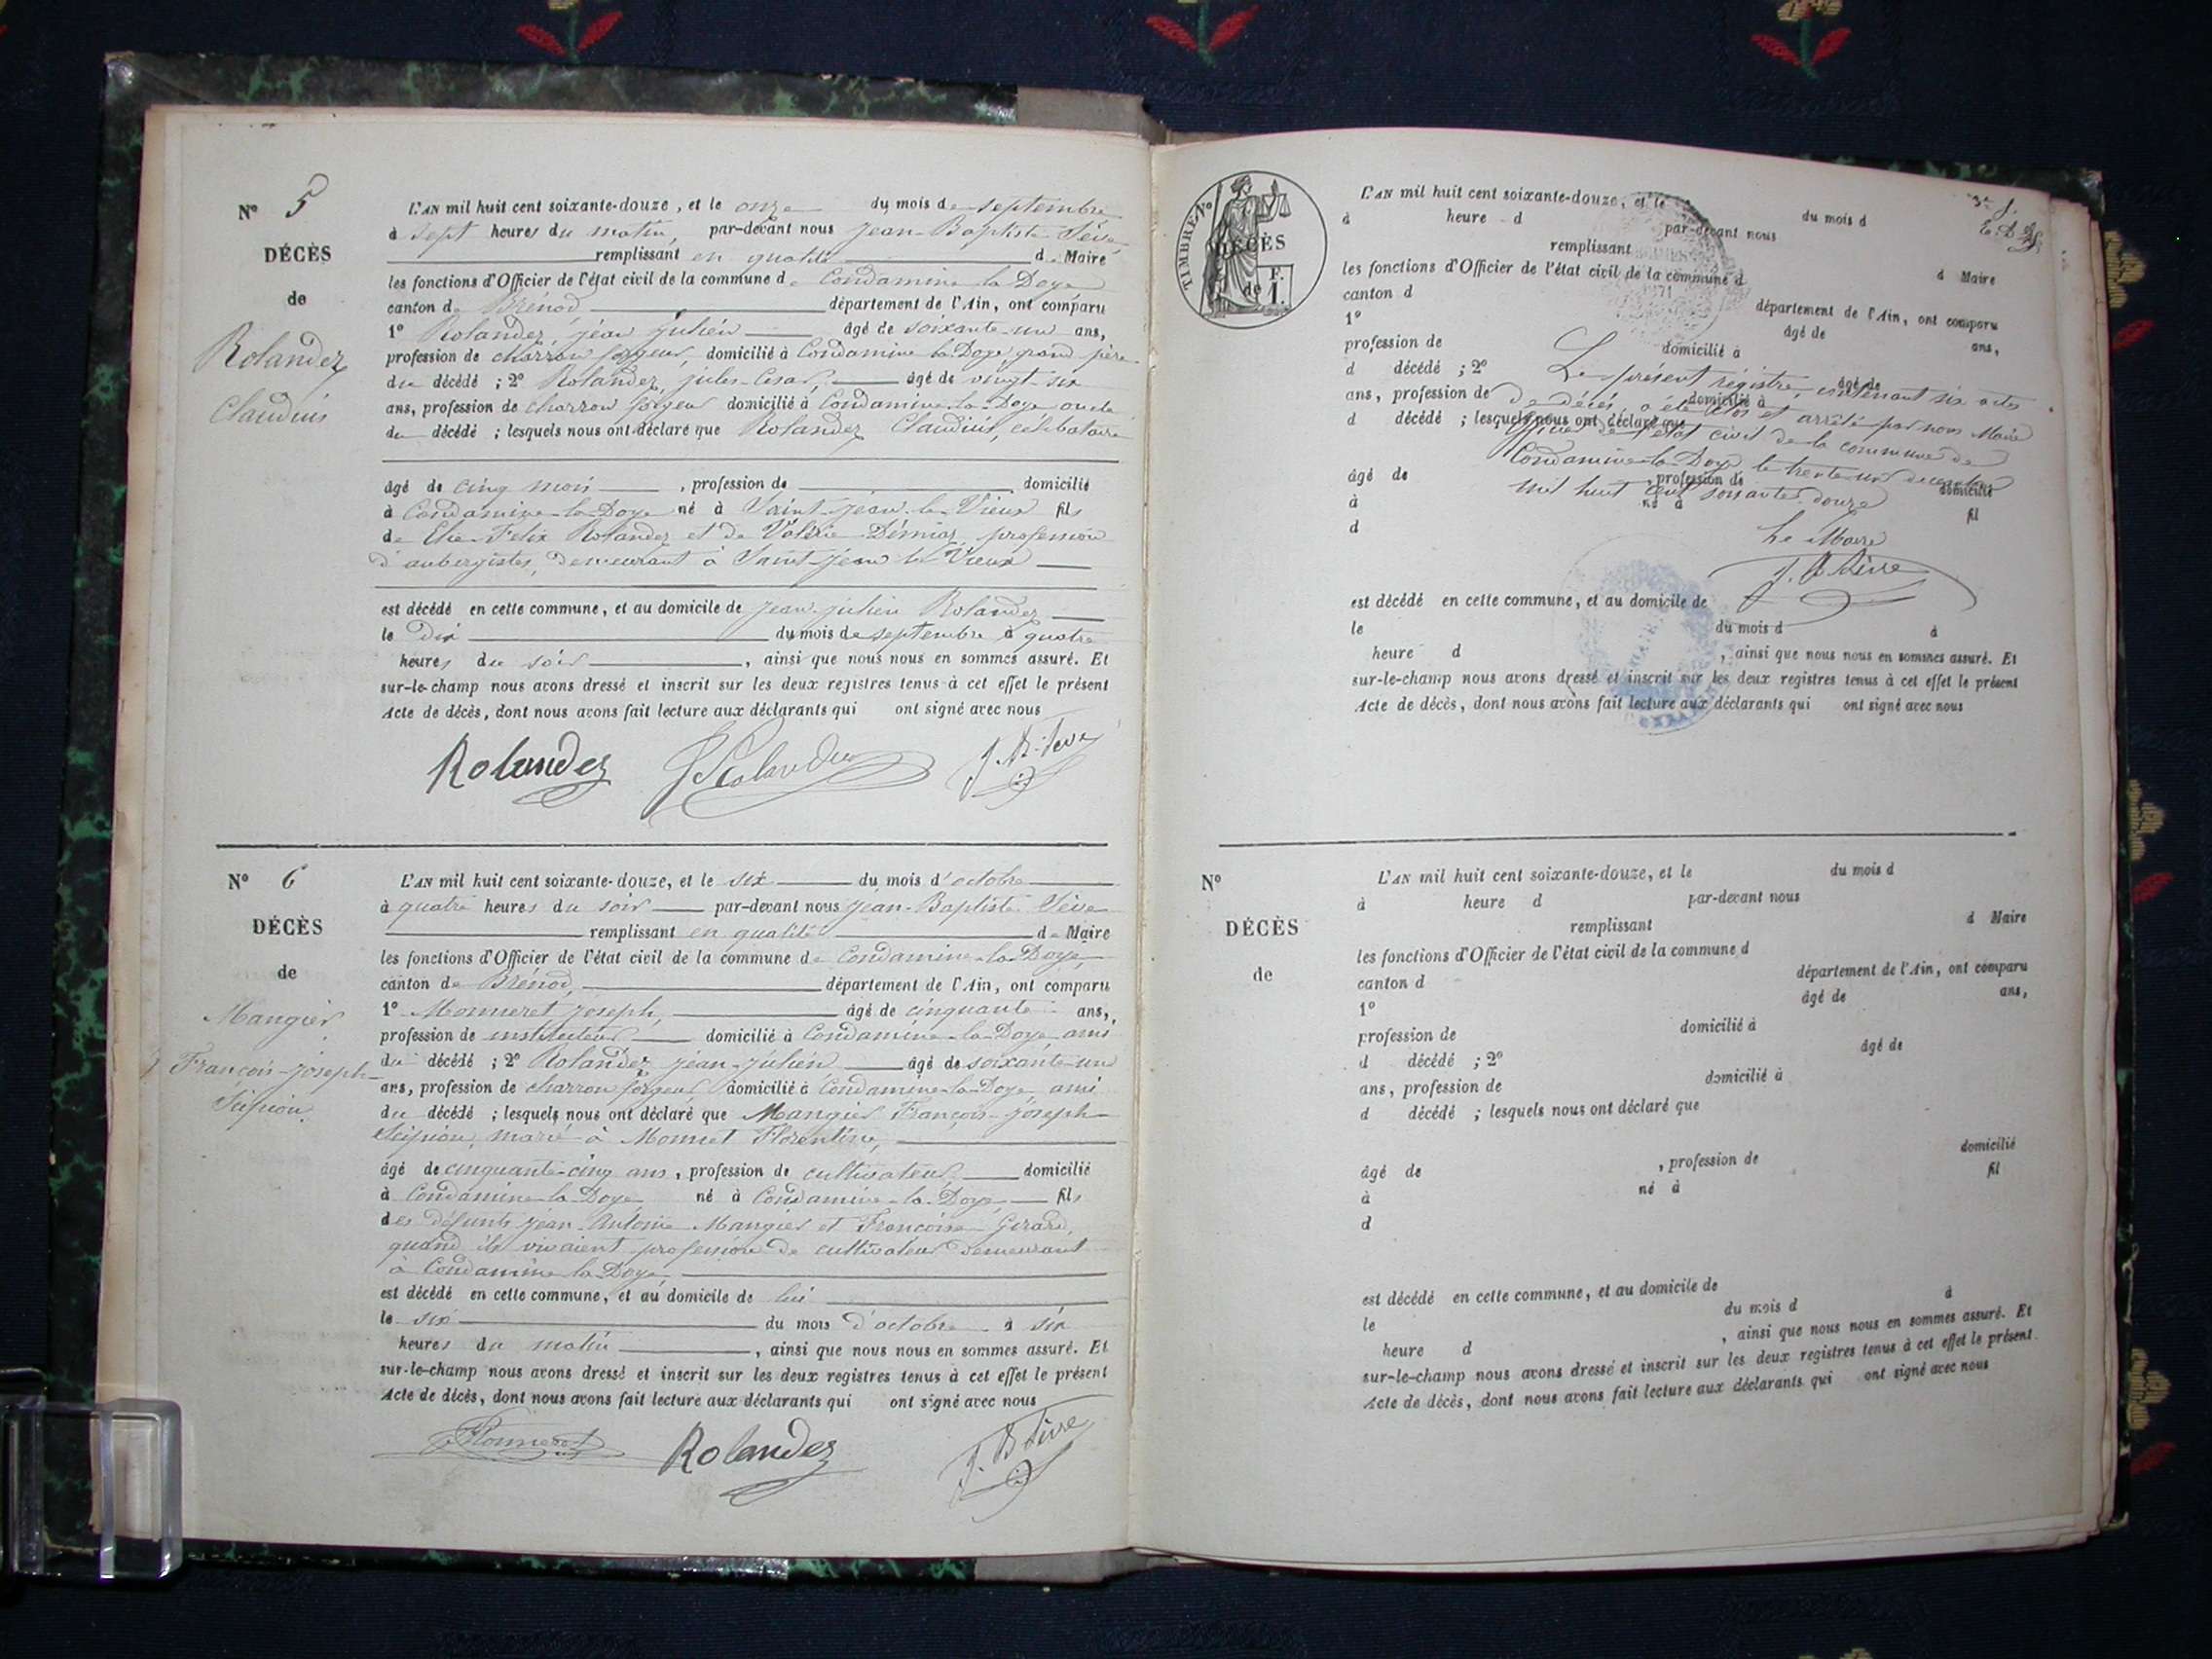 N° 5
DÉCÈS
de
Rolandez
Claudius
L'AN mil huit cent soixante-douze, et le onze du mois de septembre
à sept heures du matin, par-devant nous Jean-Baptiste Sève
remplissant en qualité de Maire
les fonctions d'Officier de l'état civil de la commune de Condamine-la-Doye
canton de Brénod département de l'Ain, ont comparu
1° Rolandez, jean julien âgé de soixante-un ans,
profession de charron forgeur, domicilié à Condamine-la-Doye grand-père
du décédé ; 2° Rolandez, jules-César, âgé de vingt-six
ans, profession de charron forgeur domicilié à Condamine-la-Doye oncle
du décédé ; lesquels nous ont déclaré que Rolandez Claudius, célibataire
âgé de cinq mois , profession de domicilié
à Condamine-la-Doye né à Saint-jean-le-Vieux fils
de Elie-Felix Rolandez et de Valérie profession
d'aubergistes, demeurant à Saint-jean-le-Vieux
est décédé en cette commune, et au domicile de jean-julien Rolandez
le dix du mois de septembre à quatre
heures du soir , ainsi que nous nous en sommes assuré. Et
sur-le-champ nous avons dressé et inscrit sur les deux registres tenus à cet effet le présent
Acte de décès, dont nous avons fait lecture aux déclarants qui ont signé avec nous
Rolandez J Rolandez J. B. Seve
N° 6
DÉCÈS
de
Mangier
François-joseph-
Scipion
L'AN mil huit cent soixante-douze, et le six du mois d'octobre
à quatre heures du soir par-devant nous jean-Baptiste Sève
remplissant en qualité de Maire
les fonctions d'Officier de l'état civil de la commune de Condamine-la-Doye,
canton de Brénod, département de l'Ain, ont comparu
1° Monneret joseph, âgé de cinquante ans,
profession de instituteur domicilié à Condamine-la-Doye ami
du décédé ; 2° Rolandez jean-julien âgé de soixante-un
ans, profession de charron forgeur domicilié à Condamine-la-Doye, ami
du décédé ; lesquels nous ont déclaré que Mangier François-joseph-
Scipion, marié à Florentine,
âgé de cinquante-cinq ans, profession de cultivateur, domicilié
à Condamine-la-Doye né à Condamine-la-Doye fils
des défunts jean-Antoine Mangier et Françoise Girard,
quand ils vivaient profession de cultivateur demeurant
à Condamine-la-Doye
est décédé en cette commune, et au domicile de lui
le six du mois d'octobre à six
heures du matin , ainsi que nous nous en sommes assuré. Et
sur-le-champ nous avons dressé et inscrit sur les deux registres tenus à cet effet le présent
Acte de décès, dont nous avons fait lecture aux déclarants qui ont signé avec nous
Monneret Rolandez J. B Sève
TIMBRE
DÉCÈS
de
F.
1.
L'AN mil huit cent soixante-douze, et le du mois d
à heure d par-devant nous
remplissant d Maire
les fonctions d'Officier de l'état civil de la commune d
canton d département de l'Ain, ont comparu
1° âgé de ans,
profession de domicilié à
d décédé ; 2° âgé de
ans, profession de domicilié à
d décédé ; lesquels nous ont déclaré que
Le présent régistre, contenant six actes
de décès, a été clos et arrêté par nous Maire
officier de l'état civil de la commune de
Condamine-la-Doye le trente-un décembre
mil huit cent soixante-douze
Le Maire
J. B Sève
âgé de , profession de domicilié
à né à fil
d
est décédé en cette commune, et au domicile de
le du mois d à
heure d , ainsi que nous nous en sommes assuré. Et
sur-le-champ nous avons dressé et inscrit sur les deux registres tenus à cet effet le présent
Acte de décès, dont nous avons fait lecture aux déclarants qui ont signé avec nous
N°
DÉCÈS
de
L'AN mil huit cent soixante-douze, et le du mois d
à heure d par-devant nous
remplissant d Maire
les fonctions d'Officier de l'état civil de la commune d
canton d département de l'Ain, ont comparu
1° âgé de ans,
profession de domicilié à
d décédé ; 2° âgé de
ans, profession de domicilié à
d décédé ; lesquels nous ont déclaré que
âgé de , profession de domicilié
à né à fil
d
est décédé en cette commune, et au domicile de
le du mois d à
heure d , ainsi que nous nous en sommes assuré. Et
sur-le-champ nous avons dressé et inscrit sur les deux registres tenus à cet effet le présent
Acte de décès, dont nous avons fait lecture aux déclarants qui ont signé avec nous